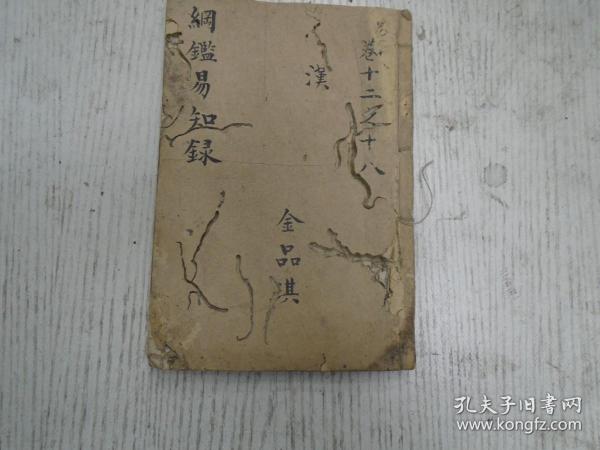 卷十二之十八
漢
金品淇
綱鑑易知録
孔夫子旧书网
www.kongfz.com